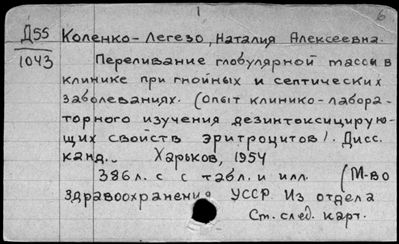 1 6
Д55 Коленко-Легезо, Наталия Алексеевна.
1043 Переливание глобулярной массы в
клинике при гнойных и септических
заболеваниях. (Опыт клинико-лабора-
торного изучения дезинтоксицирую-
щих свойств эритроцитов). Дисс.
канд.. Харьков, 1954
386л. с с табл. и илл. (М-во
Здравоохранения УССР. Из отдела
Ст. след. карт.